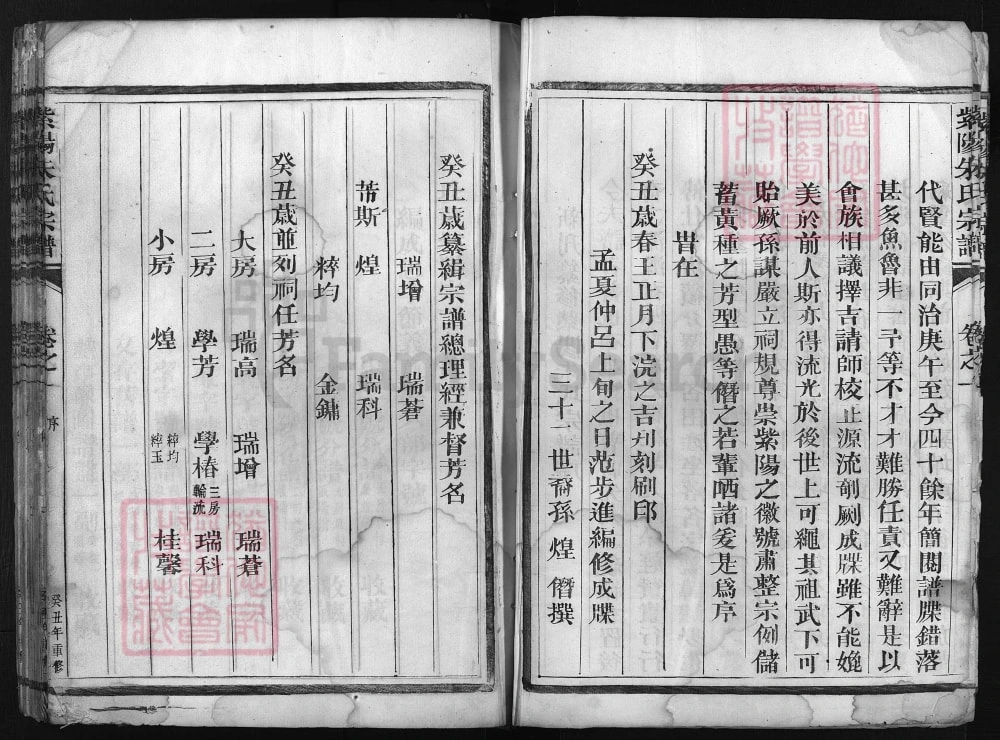 紫陽朱氏宗譜
卷之一
代賢能由同治庚午至今四十餘年簡閱譜牒錯落
甚多魚魯非一予等不才才難勝任責又難辭是以
會族相議擇吉請師校正源流剞劂成牒雖不能娩
美於前人斯亦得流光於後世上可繩其祖武下可
貽厥孫謀嚴立祠規尊崇紫陽之徽號肅整宗例儲
蓄黃種之芳型愚等僭之若輩哂諸爰是爲序
旹在
癸丑歲春王正月下浣之吉刋刻刷印
孟夏仲呂上旬之日范步進編修成牒
三十一世裔孫 煌 僭撰
癸丑歲纂緝宗譜總理經兼督芳名
瑞增 瑞蒼
芾斯 煌 瑞科
粹均 金鏞
癸丑歲並列祠任芳名
大房 瑞高 瑞增 瑞蒼
二房 學芳 學椿 三房輪流 瑞科
小房 煌 粹均 粹玉 桂馨
紫陽朱氏宗譜
卷之一
序
癸丑年重修
FamilySearch